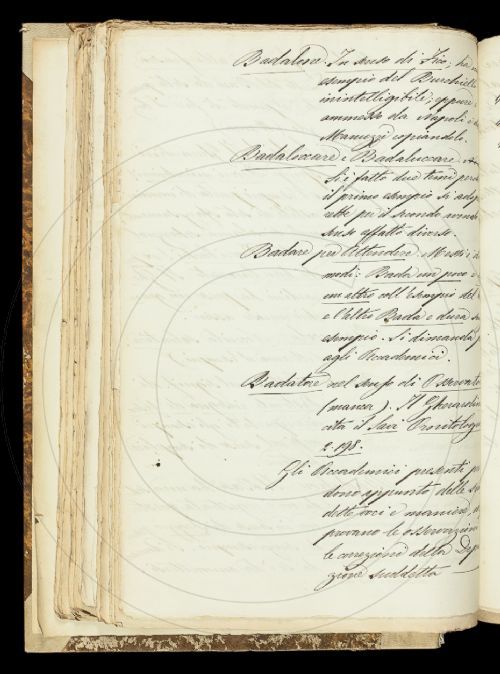 Badalone. In senso di Fico, ha
esempio del Burchiello
inintelligibile, eppure
ammesso da Napoli e
Manuzzi copiandolo.
Badaloccare e Badaluccare
Si è fatto due temi
il primo esempio si
rebbe per il secondo
senso affatto diverso.
Badare per Attendere. Messi i
modi: Bada un poco
un altro coll'esempio del
e l'altro Bada e dura
esempio. Si dimanda
agli Accademici.
Badatore nel senso di Osservatore
(manca). Il Gherardini
cita il Savi Ornitologia
2.198.
Gli Accademici presenti
dono appunto delle
dette voci e maniere,
provano le osservazioni
le correzioni della
zione suddetta